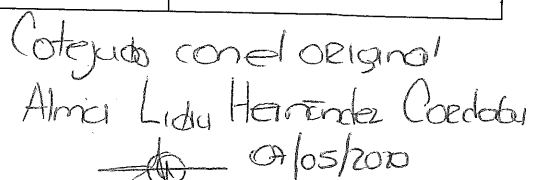 Cotejado con el original
Alma Lidia Hernández Cordoba
07/05/2010